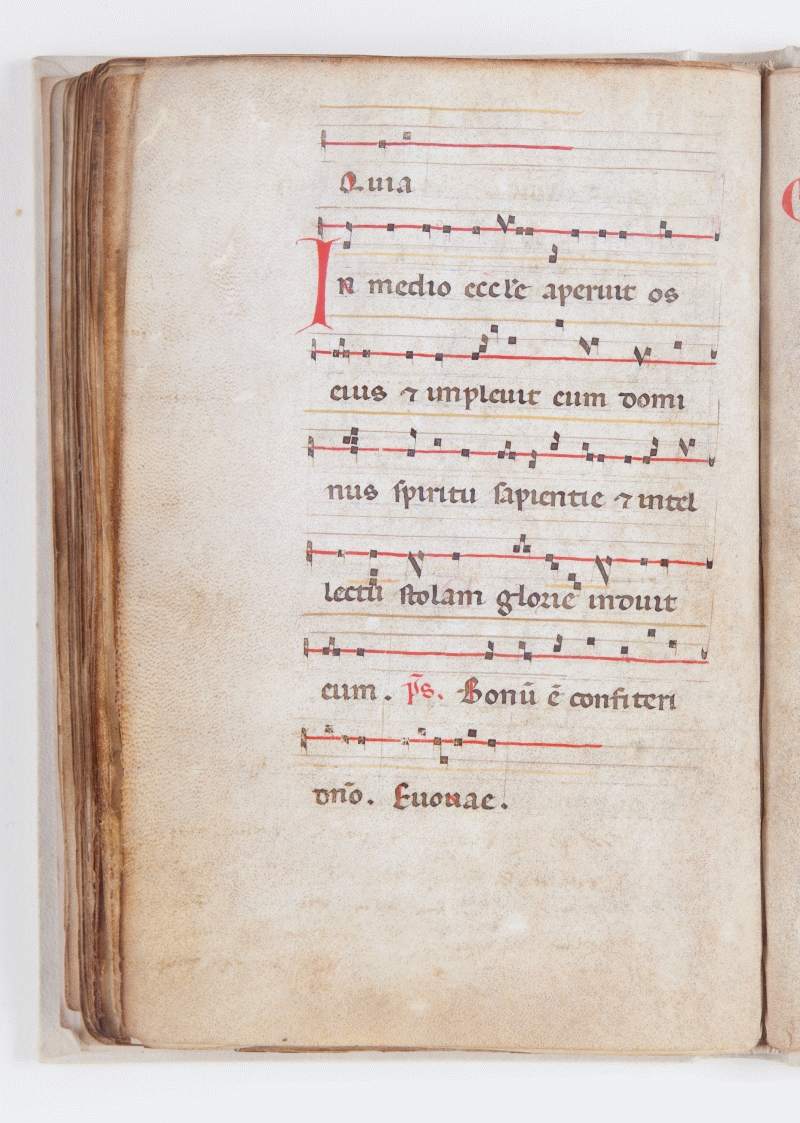 Quia
In medio eccl'e aperuit os
eius ⁊ impleuit eum domi
nus spiritu sapientie ⁊ intel
lectū stolam glorie induit
eum. p̄s. Bonū ē confiteri
dn̄o. Euouae.